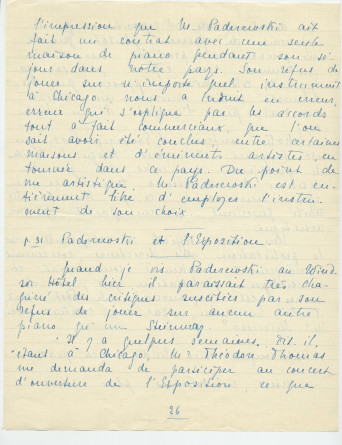 l'impression que M. Paderewski ait
fait un contrat avec une seule
maison de piano pendant son sé
jour dans notre pays. Son refus de
jouer sur n'importe quel instrument
à Chicago nous a induit en erreur,
erreur qui s'explique par les accords
tout à fait commerciaux, que l'on
sait avoir été conclus entre certaines
maisons et d'éminents artistes en
tournée dans ce pays. Du point de
vue artistique M. Paderewski est en-
tièrement libre d'employer l'instru-
ment de son choix
p. 31 Paderewski et l'Exposition
Quand je vis Paderewski au Wind
sor Hôtel, hier il paraissait très cha-
griné des critiques suscitées par son
refus de jouer sur aucun autre
piano qu'un Steinway.
"Il y a quelques semaines. Dit-il,
étant à Chicago, Mr Théodore Thomas
me demanda de participer au concert
d'ouverture de l'Exposition, ce que
26